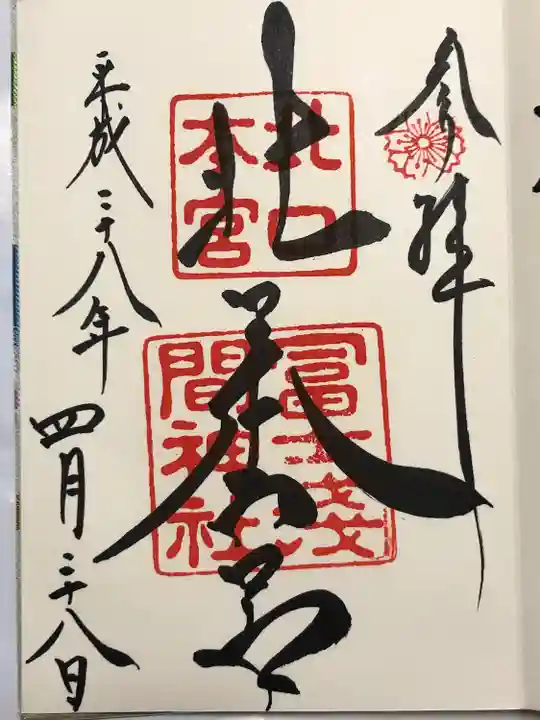 参拝
北口本宮
北口
本宮
冨士浅
間神社
平成二十八年
四月二十八日